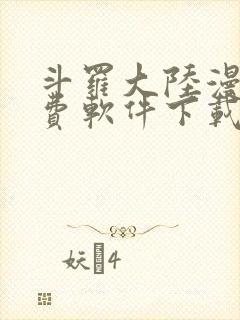 斗羅大陸漫
費軟件下載
妖 4